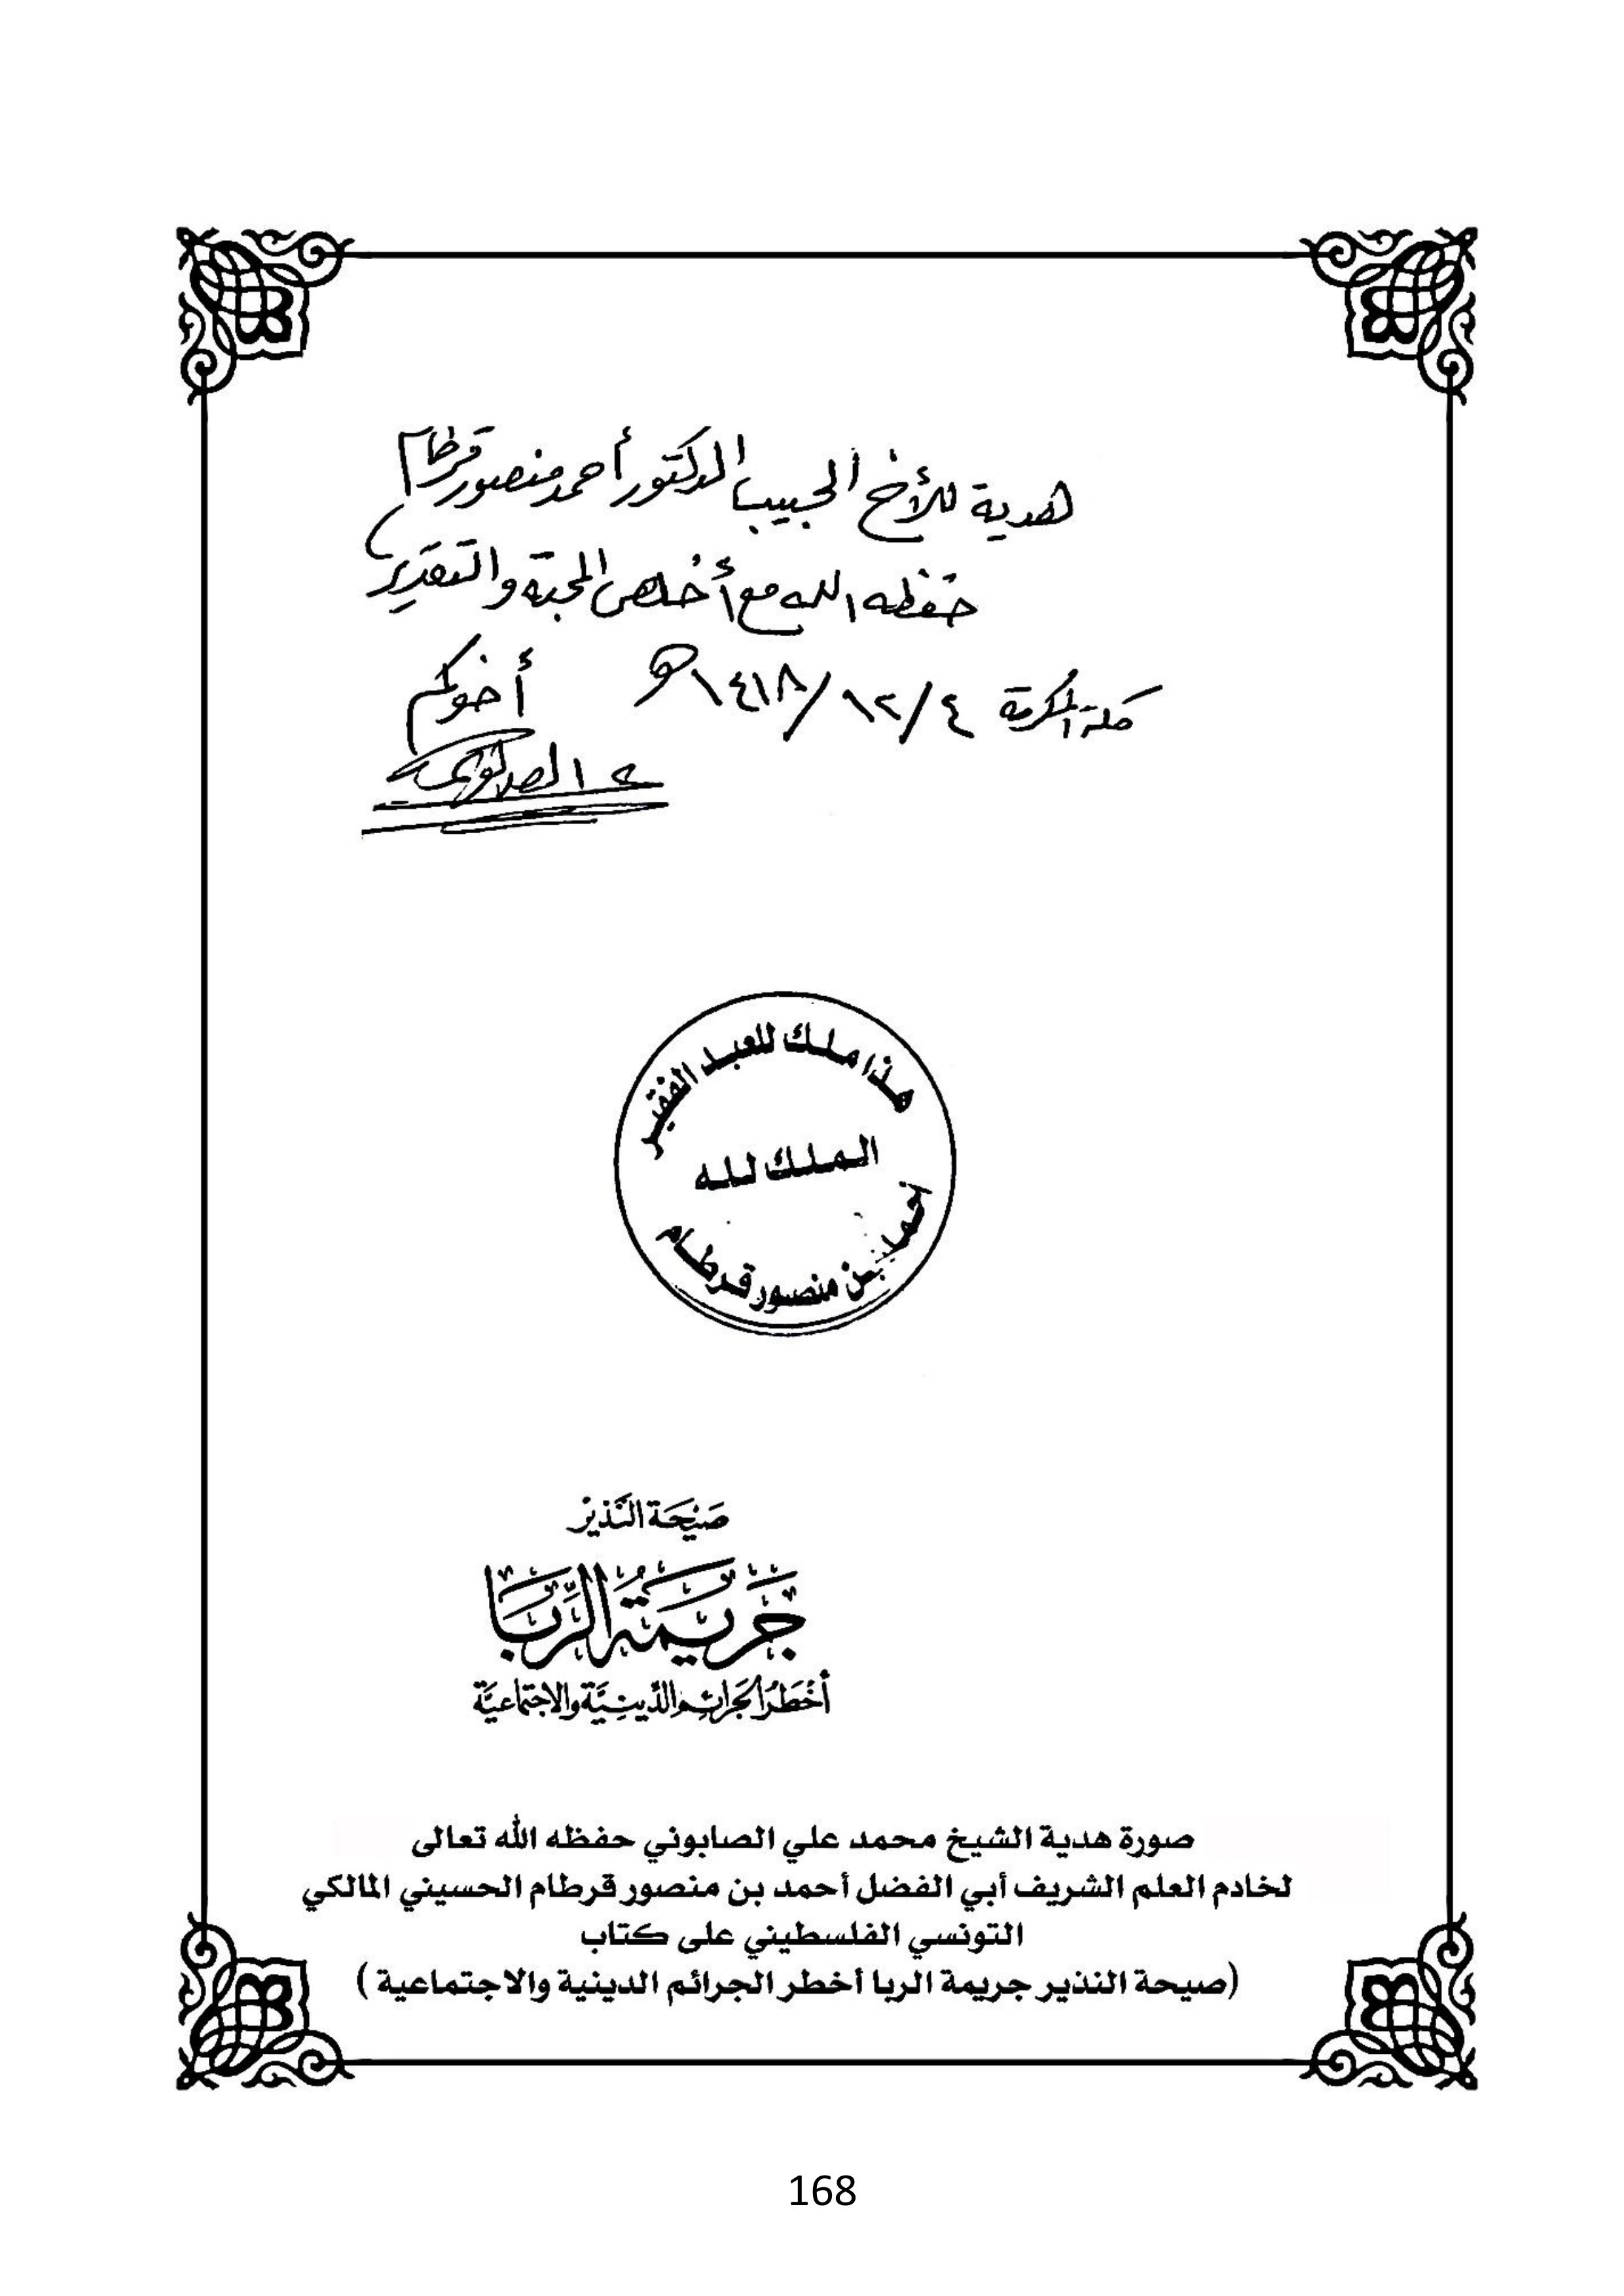 هدية للأخ الحبيب الدكتور أحمد منصور قرطام
حفظه الله مع أخلص المحبة والتقدير
مكة المكرمة ٤/١٢/١٤١٨هـ
أخوكم
الصابوني
هذا ملك للعبد الفقير
الملك لله
أحمد بن منصور قرطام
صَيْحَة النَّذيْر
جَريمَة الرِّبَا
أَخْطَرُ الجَرائِم الدِّينيَّة والاجتماعيَّة
صورة هدية الشيخ محمد علي الصابوني حفظه الله تعالى
لخادم العلم الشريف أبي الفضل أحمد بن منصور قرطام الحسيني المالكي
التونسي الفلسطيني على كتاب
(صيحة النذير جريمة الربا أخطر الجرائم الدينية والاجتماعية )
168